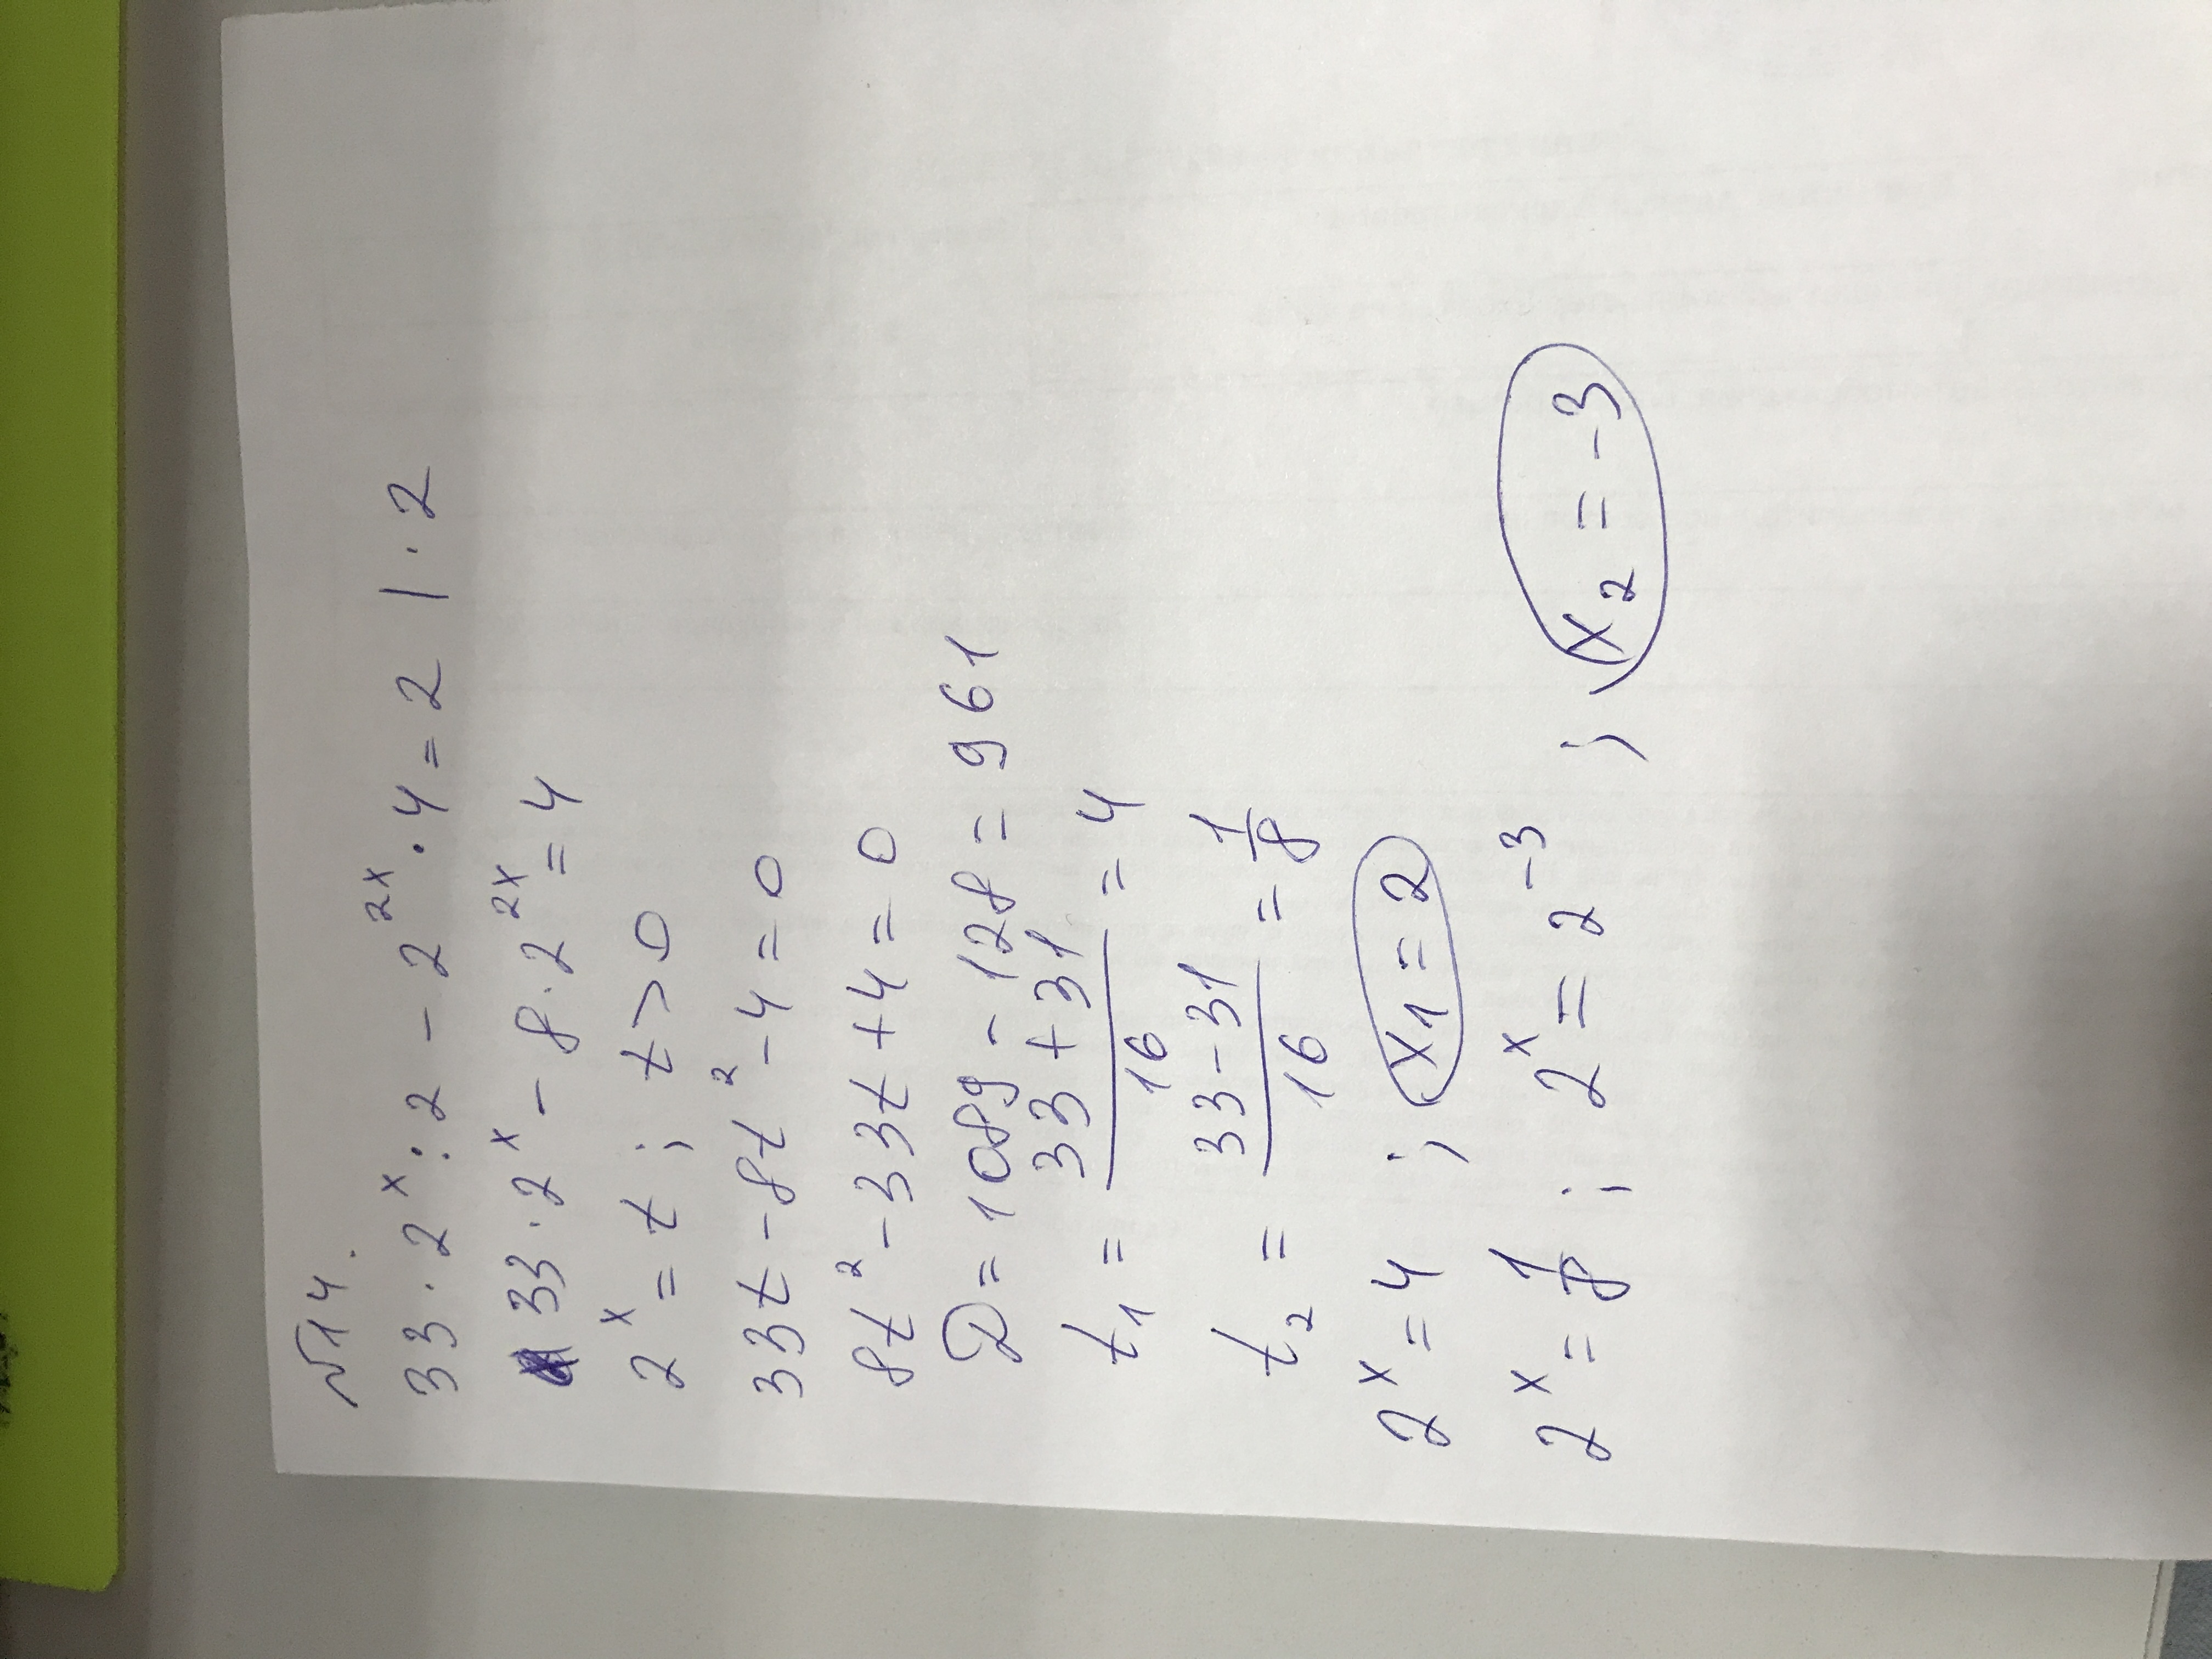 №14.
33·2^x : 2 - 2^{2x}·4 = 2 | ·2
33·2^x - 8·2^{2x} = 4
2^x = t ; t > 0
33t - 8t² - 4 = 0
8t² - 33t + 4 = 0
D = 1089 - 128 = 961
t₁ = (33 + 31)/16 = 4
t₂ = (33 - 31)/16 = 1/8
2^x = 4 ; x₁ = 2
2^x = 1/8 ; 2^x = 2^{-3} ; x₂ = -3